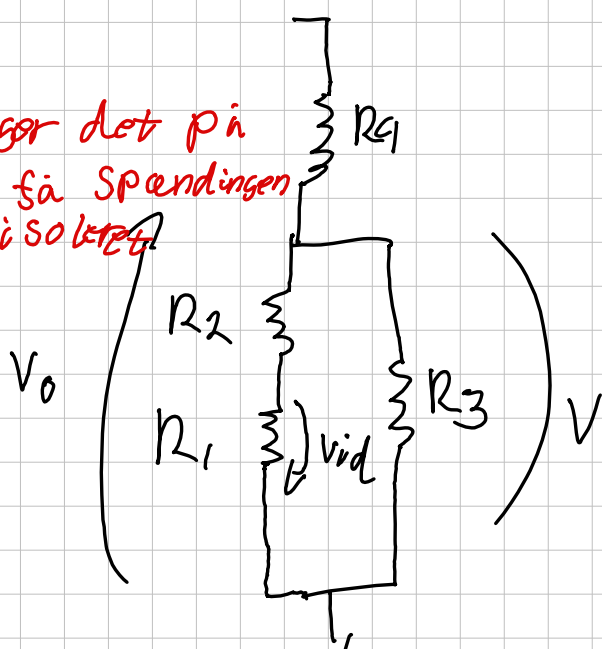 gør det på
få spændingen
isoleret
R4
R2
V0
R1
Vid
R3
V